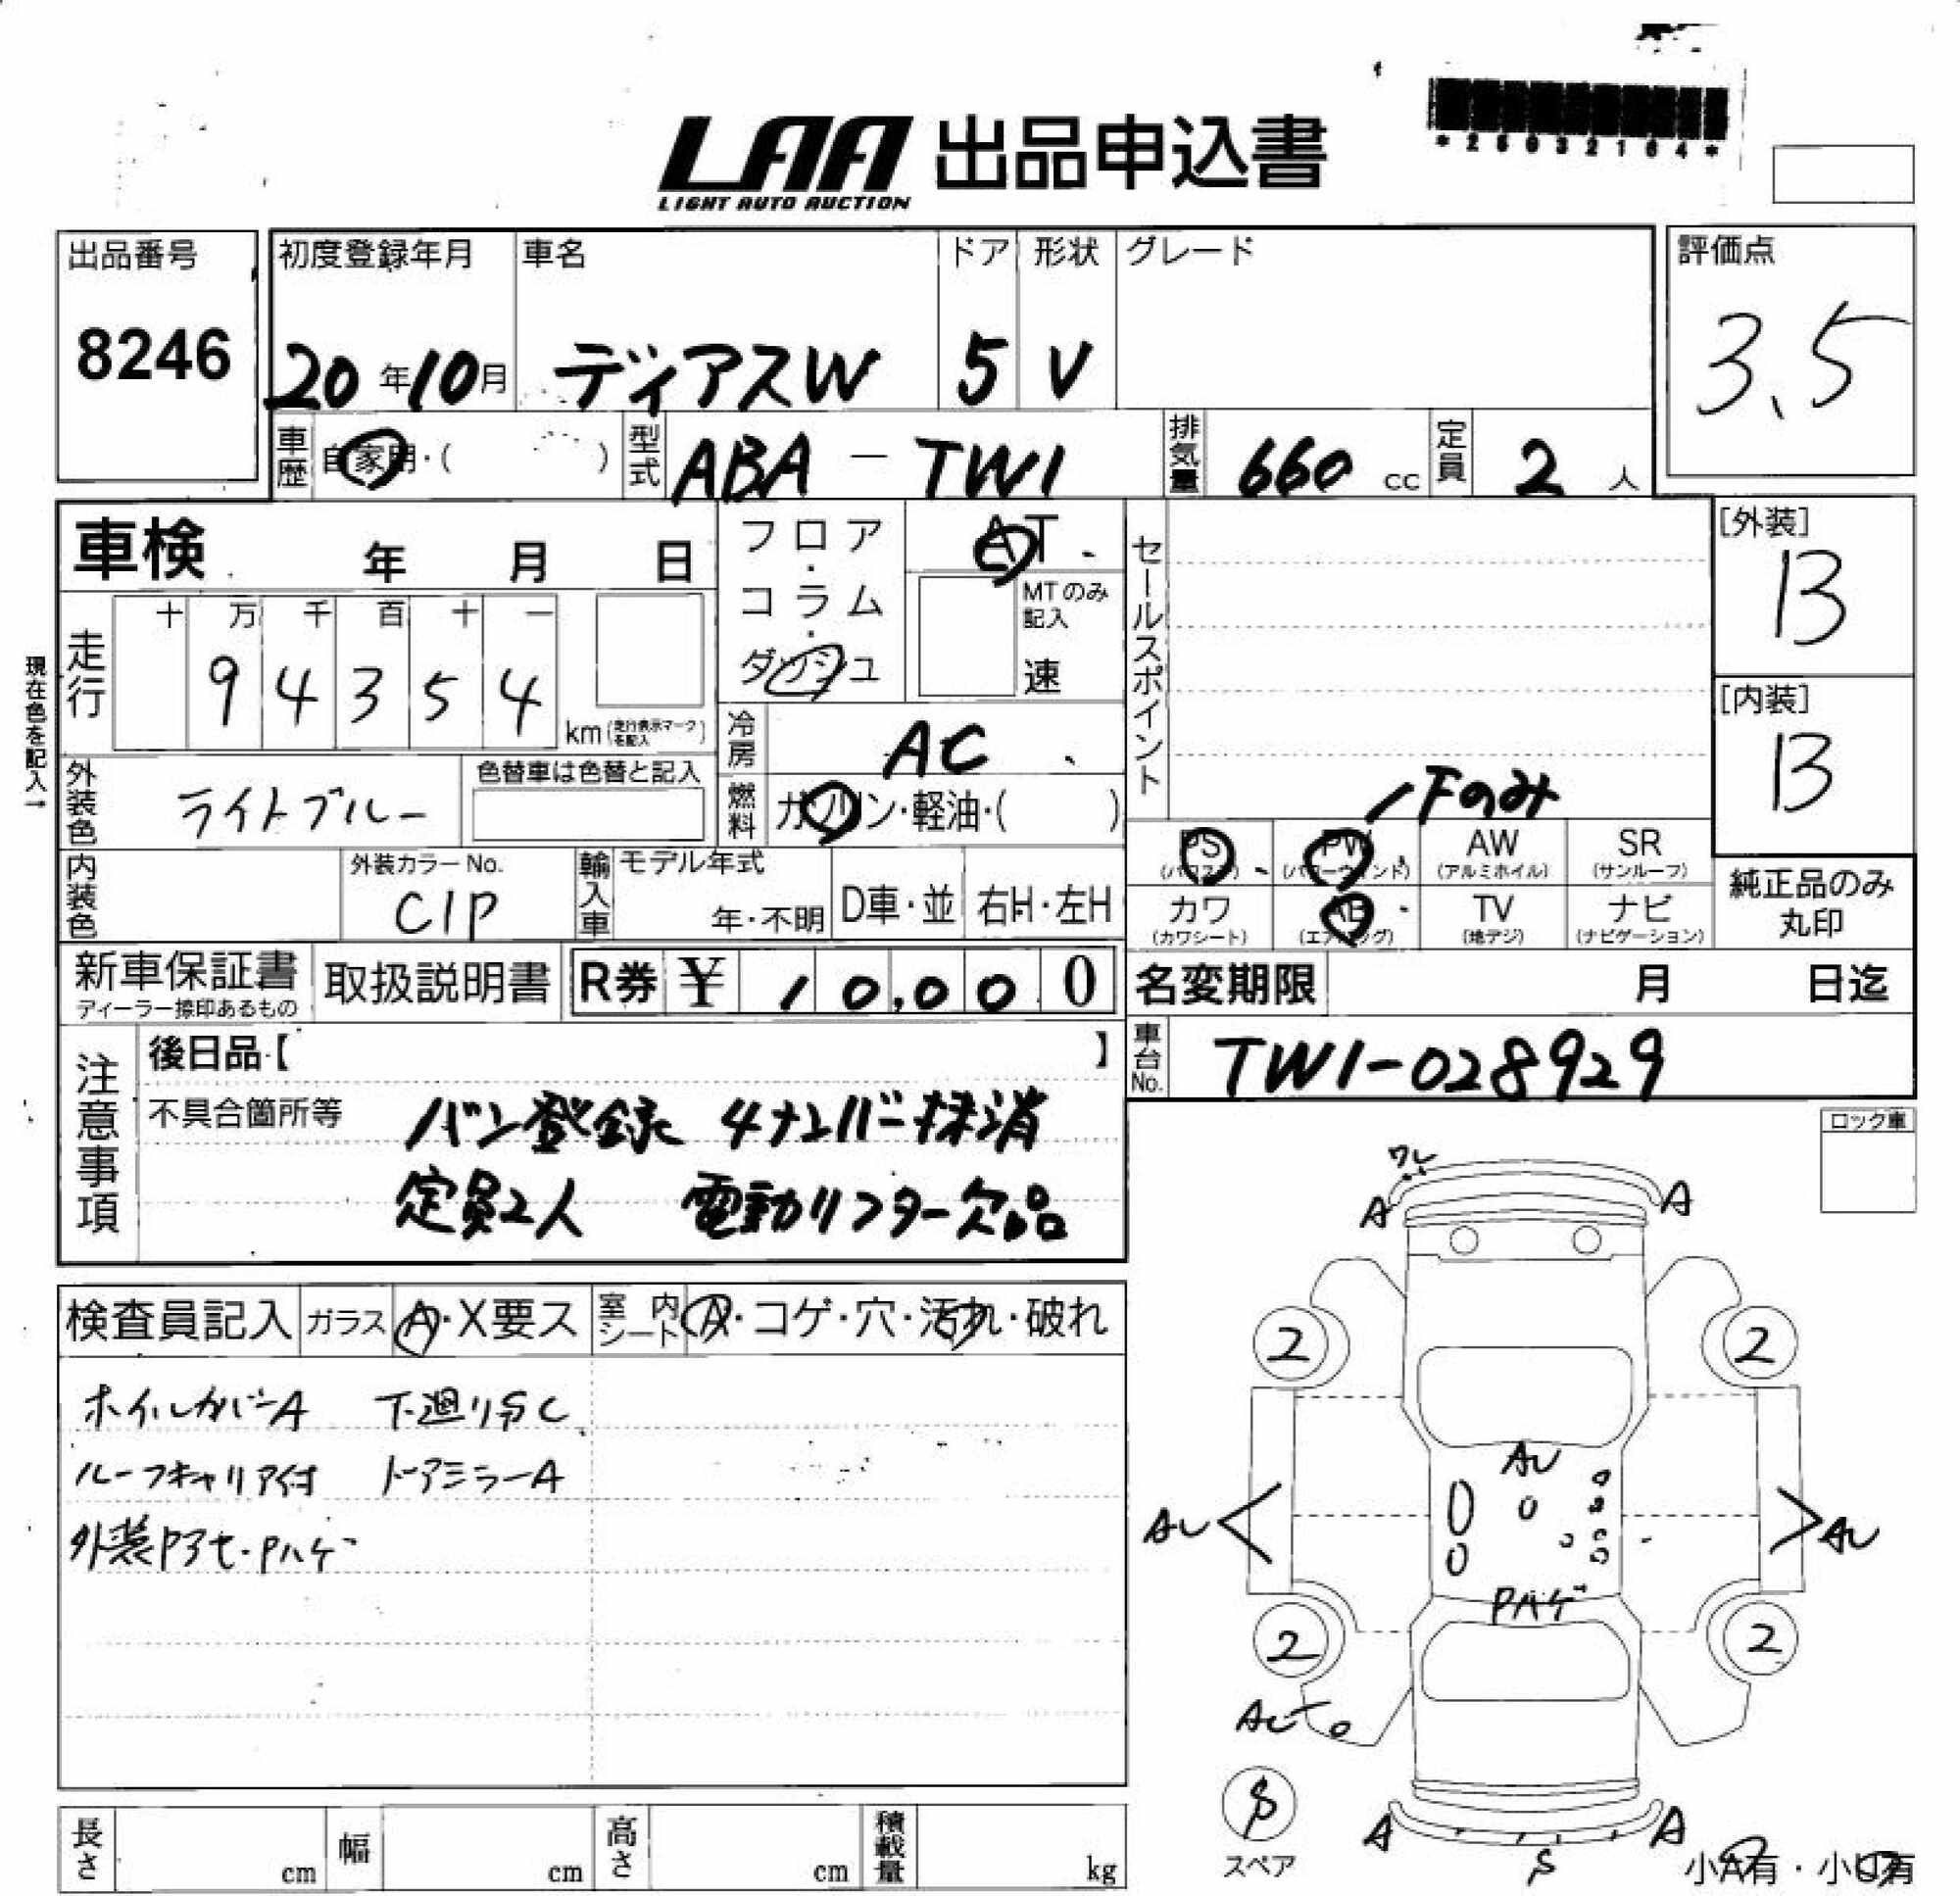 LAA 出品申込書
LIGHT AUTO AUCTION
出品番号
8246
初度登録年月
20年10月
車名
ディアスW
ドア
5
形状
V
グレード
評価点
3.5
車歴
自家用・( )
型式
ABA - TW1
排気量
660 cc
定員
2 人
車検 年 月 日
フロア・コラム・ダッシュ
AT
MTのみ記入
速
セールスポイント
[外装]
B
[内装]
B
現在色を記入→
走行
十 万 千 百 十 一
9 4 3 5 4
km(走行表示マークを記入)
冷房
AC
外装色
ライトブルー
色替車は色替と記入
燃料
ガソリン・軽油・( )
Fのみ
PS
(パワステ)
PW
(パワーウィンド)
AW
(アルミホイル)
SR
(サンルーフ)
カワ
(カワシート)
AB
(エアバッグ)
TV
(地デジ)
ナビ
(ナビゲーション)
純正品のみ
丸印
内装色
外装カラーNo.
C1P
輸入車
モデル年式
年・不明
D車・並
右H・左H
新車保証書
ディーラー捺印あるもの
取扱説明書
R券 ¥ 10,000
名変期限 月 日迄
車台No.
TW1-028929
注意事項
後日品【 】
不具合箇所等
バン登録 4ナンバー抹消
定員2人 電動リフター欠品
ロック車
検査員記入
ガラス
A・X要ス
室内シート
A・コゲ・穴・汚れ・破れ
ホイルカバーA 下廻りSC
ルーフキャリア付 ドアミラーA
外装P3セ・Pハゲ
ワレ
A A
2 2
AU
AU AU
Pハゲ
2 2
AU
S
スペア
A A
S
小A有・小U有
長さ cm
幅 cm
高さ cm
積載量 kg